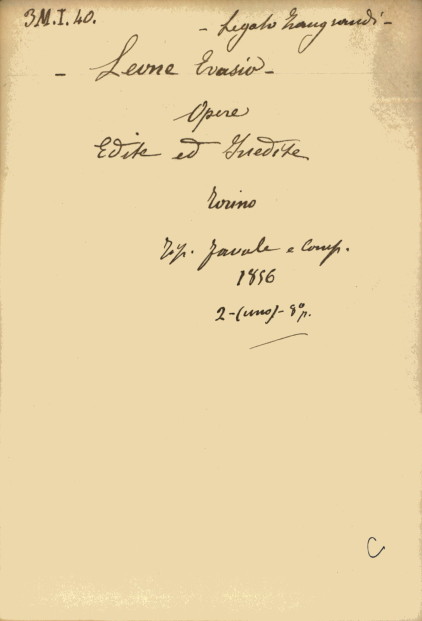 3M.I.40.
- Legato Zangrandi -
- Leone Evasio -
Opere
Edite ed Inedite
Torino
Tip. Favale e Comp.
1856
2-(uno)- 8° p.
C